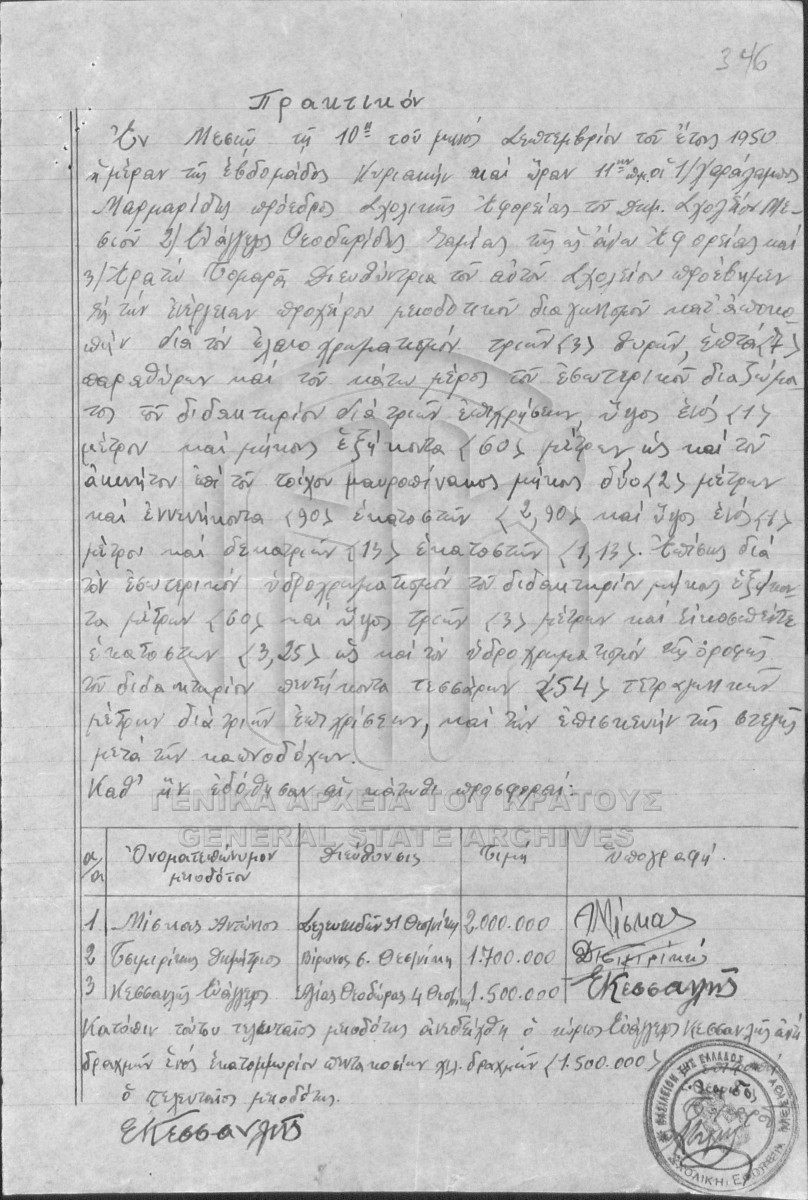 346
Πρακτικόν
Ἐν Μεσιᾷ τῇ 10ῃ τοῦ μηνός Σεπτεμβρίου τοῦ ἔτους 1950
ἡμέραν τῆς ἑβδομάδος Κυριακήν καί ὥραν 11ην π.μ. οἱ 1/ Χαράλαμπος
Μαρμαρίδης πρόεδρος Σχολικῆς Ἐφορείας τοῦ Δημ. Σχολείου Με-
σιᾶς 2/ Εὐάγγελος Θεοδωρίδης ταμίας τῆς ὡς ἄνω Ἐφορείας καί
3/ Ἐρατώ Διευθύντρια τοῦ αὐτοῦ Σχολείου προέβημεν
εἰς τήν ἐνέργειαν προχείρου μειοδοτικοῦ διαγωνισμοῦ κατ' ἀποκο-
πήν διά τόν ἐλαιοχρωματισμόν τριῶν <3> θυρῶν, ἑπτά <7>
παραθύρων καί τοῦ κάτω μέρος τοῦ ἐσωτερικοῦ διαζώμα-
τος τοῦ διδακτηρίου διά τριῶν ἐπιχρήσεων, ὕψος ἑνός <1>
μέτρου καί μήκους ἑξήκοντα <60> μέτρων, ὡς καί τοῦ
ἀκινήτου ἐπί τοῦ τοίχου μαυροπίνακος μήκος δύο <2> μέτρων
καί ἐννενήκοντα <90> ἑκατοστῶν <2,90> καί ὕψος ἑνός <1>
μέτρου καί δεκατριῶν <13> ἑκατοστῶν <1,13>. Ἐπίσης διά
τόν ἐσωτερικόν ὑδροχρωματισμόν τοῦ διδακτηρίου μήκος ἑξήκον-
τα μέτρων <60> καί ὕψος τριῶν <3> μέτρων καί εἰκοσιπέντε
ἑκατοστῶν <3,25> ὡς καί τόν ὑδροχρωματισμόν τῆς ὀροφῆς
τοῦ διδακτηρίου πεντήκοντα τεσσάρων <54> τετραγωνικῶν
μέτρων διά τριῶν ἐπιχρίσεων, καί τήν ἐπισκευήν τῆς στέγης
μετά τῶν καπνοδόχων.
Καθ' ἥν ἐδόθησαν αἱ κάτωθι προσφοραί:
ΓΕΝΙΚΑ ΑΡΧΕΙΑ ΤΟΥ ΚΡΑΤΟΥΣ
GENERAL STATE ARCHIVES
α/α Ὀνοματεπώνυμον μειοδότου Διεύθυνσις Τιμή Ὑπογραφή
1 Μίσκας Ἀντώνιος Σελευκιδῶν 31 Θεσ/νίκη 2.000.000 Α Μίσκας
2 Τσιμιρίκας Δημήτριος Βύρωνος 6. Θεσ/νίκη 1.700.000
3 Κεσσανλῆς Εὐάγγελος Ἁγίας Θεοδώρας 4 Θεσ/νίκη 1.500.000 Ε Κεσσανλῆς
Κατόπιν τούτου τελευταῖος μειοδότης ἀνεδείχθη ὁ κύριος Εὐάγγελος Κεσσανλῆς ἀντί
δραχμῶν ἑνός ἑκατομμυρίου πεντακοσίων χιλ. δραχμῶν <1.500.000>
ὁ τελευταῖος μειοδότης.
Ε Κεσσανλῆς
ΒΑΣΙΛΕΙΟΝ ΤΗΣ ΕΛΛΑΔΟΣ
ΣΧΟΛΙΚΗ ΕΦΟΡΕΙΑ